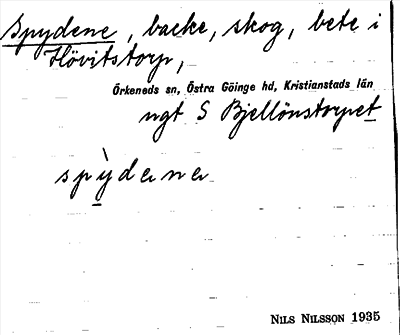 Spydene, backe, skog, bete i
Hövitstorp,
Örkeneds sn, Östra Göinge hd, Kristianstads län
ngt S Bjellönstorpet
spỳdene
NILS NILSSON 1935